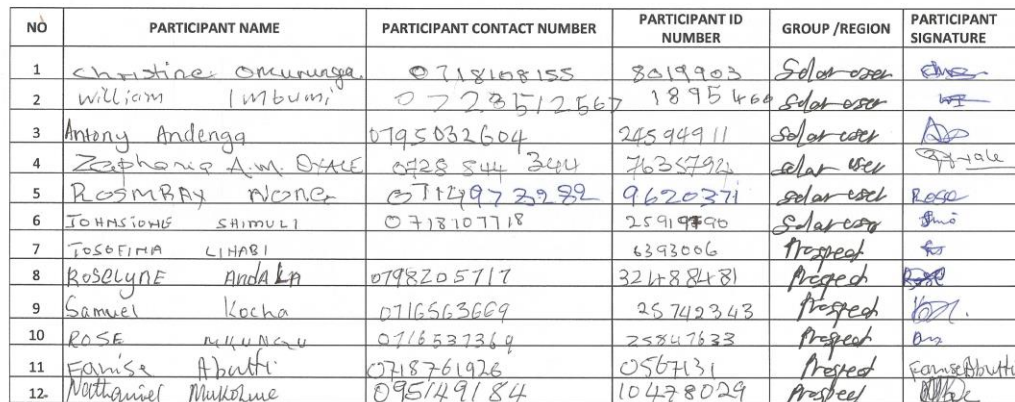 NO PARTICIPANT NAME PARTICIPANT CONTACT NUMBER PARTICIPANT ID NUMBER GROUP /REGION PARTICIPANT SIGNATURE
1 Christine Omurunga 0718108155 8019903 Solar user
2 William Imbumi 0728512567 1895460 Solar user
3 Antony Andenga 0795032604 24594911 Solar user
4 Zephania A.M. 0728 844 344 7635792 solar user
5 ROSMBAY NONG 9620371 solar user Rose
6 JOHNSIONE SHIMULI 0718107718 Solar user
7 JOSOFINA LIHABI 6393006 Prospect
8 ROSELYNE ANDAKA 0798205717 32488481 Prospect Rose
9 Samuel Kocha 0716563669 25742343 Prospect
10 ROSE MKUNGU 0716537369 25847633 Prospect
11 Fanise Abutti 0718761926 0567131 Prospect Fanise Abutti
12- Nathaniel Mukolwe 095149184 10478029 Prospect